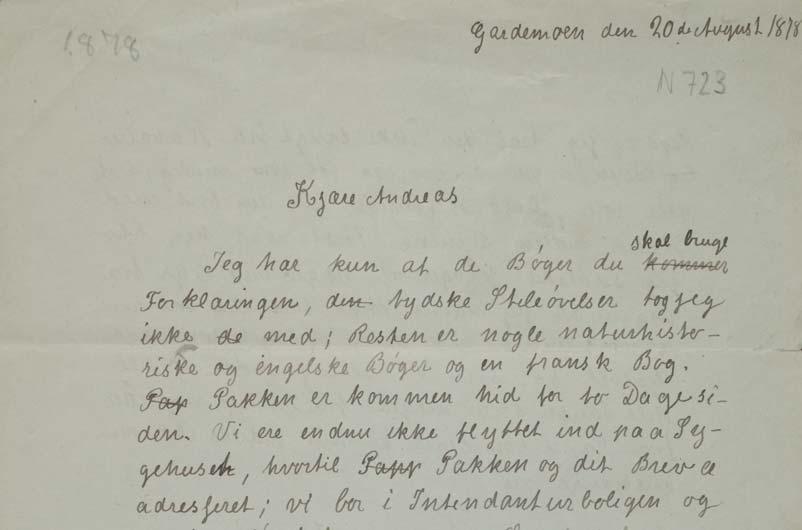 1878
Gardemoen den 20de August 1878
N 723
Kjære Andreas
skal bruge
Jeg har kun af de Bøger du kommer
Forklaringen, den tydske Stileøvelser tog jeg
ikke de med; Resten er nogle naturhisto-
riske og engelske Bøger og en fransk Bog.
Pap Pakken er kommen hid for to Dage si-
den. Vi ere endnu ikke flyttet ind paa Sy-
gehuset, hvortil Papp Pakken og dit Brev er
adresseret; vi bor i Intendanturboligen og